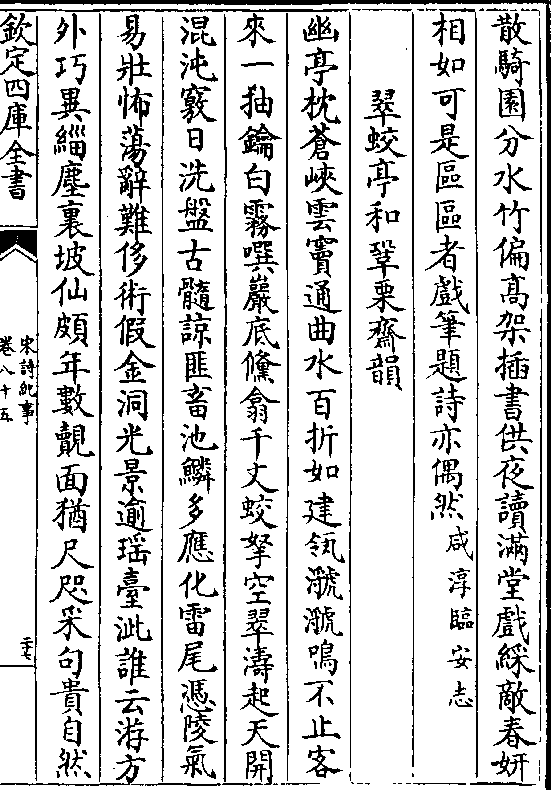 散騎園分水竹偏高架插書供夜讀滿堂戲綵敵春妍
相如可是區區者戲筆題詩亦偶然咸淳臨安志
翠蛟亭和鞏栗齋韻
幽亭枕蒼峽雲竇通曲水百折如建瓴㶁㶁鳴不止客
來一抽鑰白霧噀巖底儵翕千丈蛟拏空翠濤起天開
混沌竅日洗盤古髓諒匪畜池鱗多應化雷尾憑陵氣
易壯怖蕩辭難侈術假金洞光景逾瑶臺泚誰云游方
外巧異緇塵裏坡仙頗年數覿面猶尺咫采句貴自然
欽定四庫全書
宋詩紀事
卷八十五
二十七